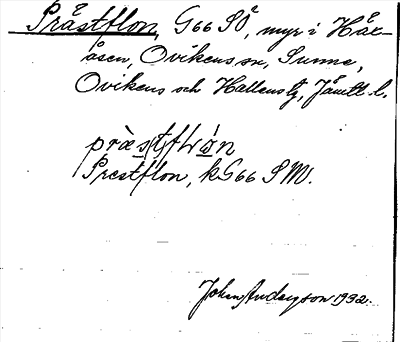 Pråstflon, G66 SÖ, myr i Håk-
åsen, Ovikens sn, Sunne,
Ovikens och Hallens tg, Jämtl. l.
præ̀s(t)flωn
Prestflon, kG66 SM.
Johan Anderson 1932.